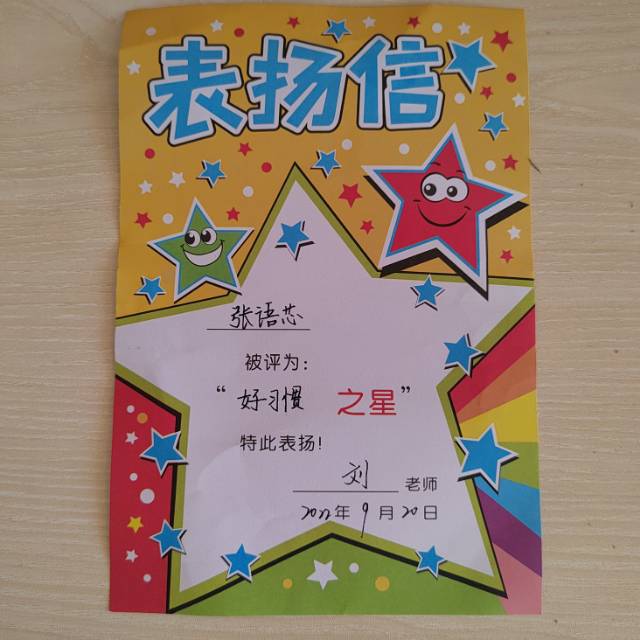 表扬信
张语芯
被评为：
“好习惯 之星”
特此表扬！
刘 老师
2022年9月20日